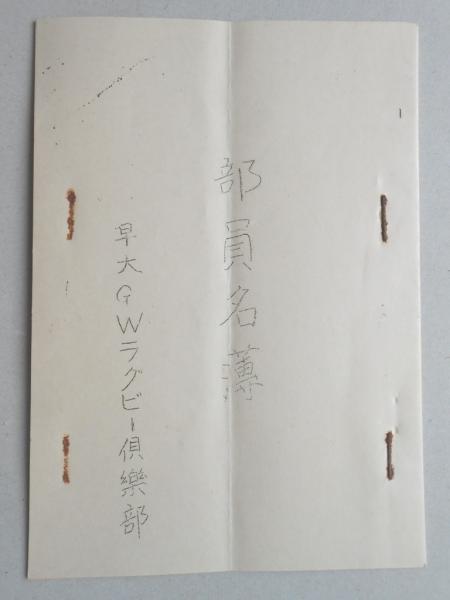 部員名薄
早大GWラグビー倶樂部